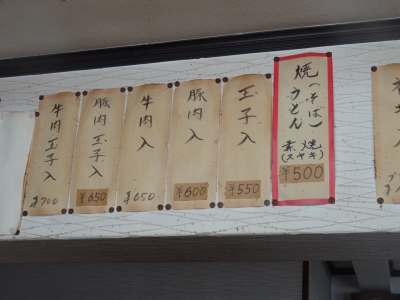 焼(そば)うどん
素焼
(スヤキ)
¥500
玉子入
¥550
豚肉入
¥600
牛肉入
¥650
豚肉玉子入
¥650
牛肉玉子入
¥700